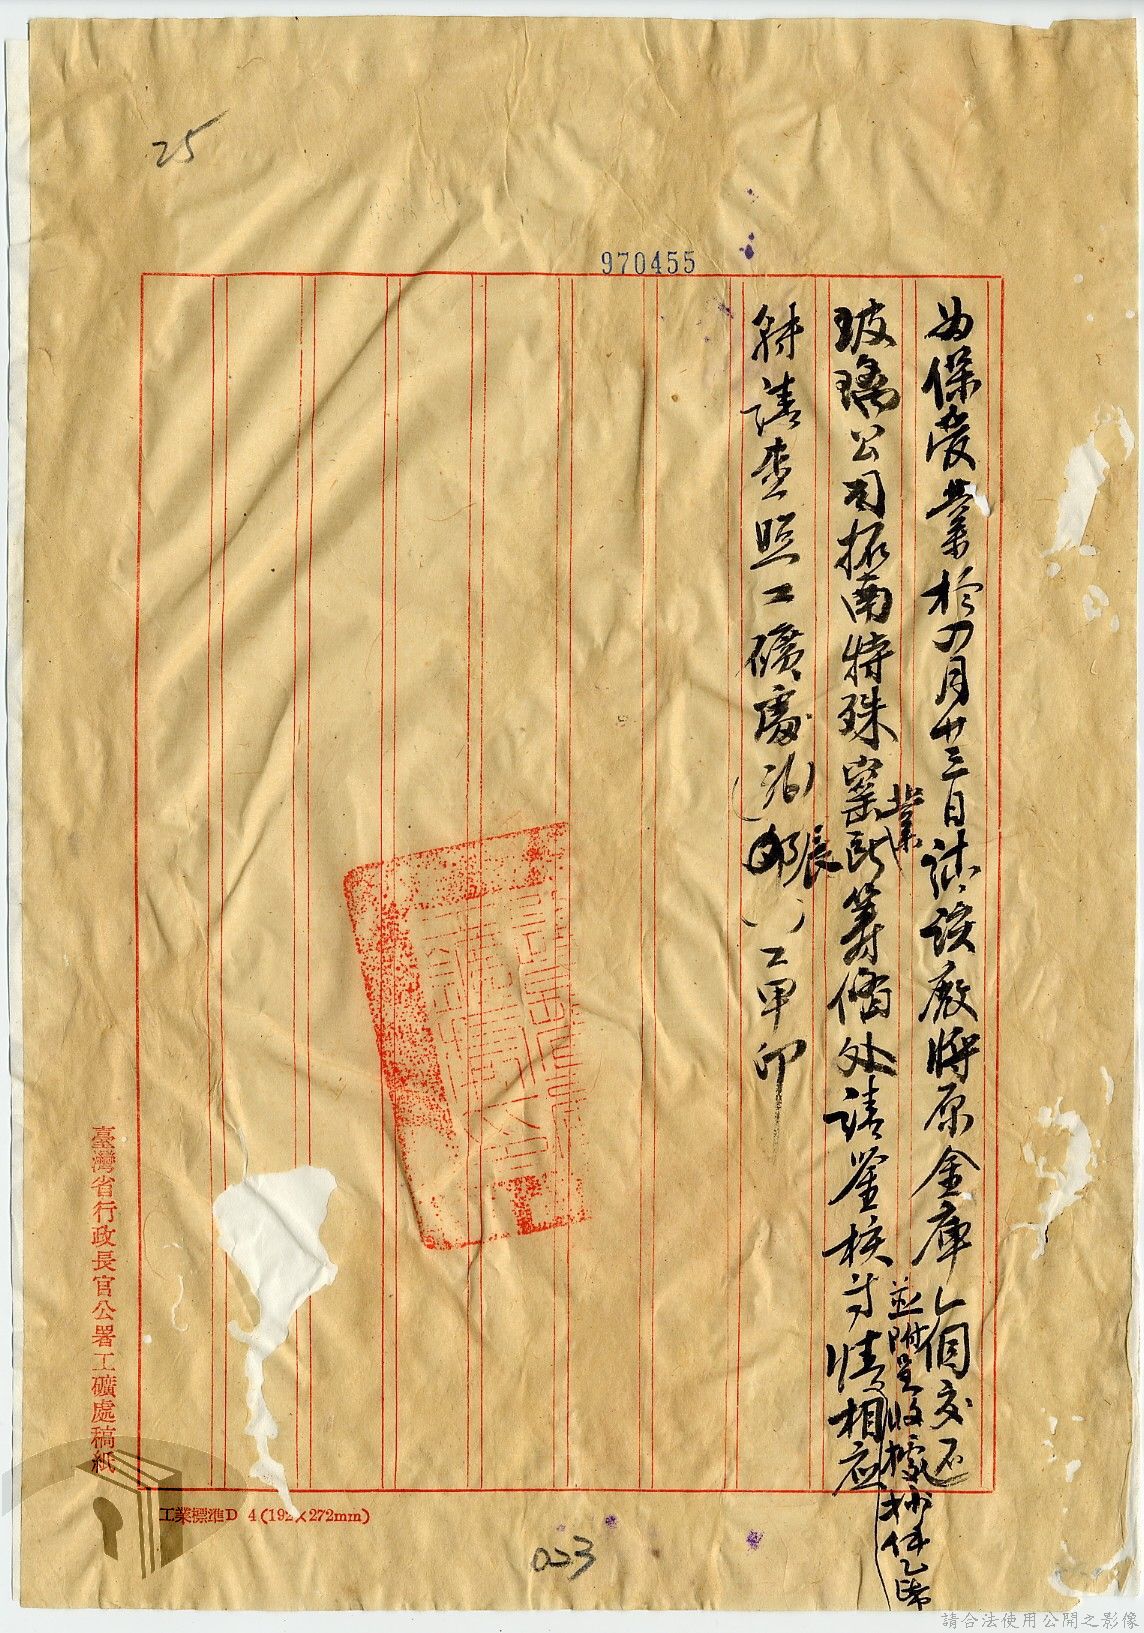 25
970455
為保費業於四月廿三日該廠將原金庫乙個交還
並附呈收據抄件乙帋
玻璃公司拓南特殊窯業籌備處請鑒核等情相應
解請查照工礦處(治)長(八)工甲印
臺灣省行政長官公署工礦處稿紙
工業標準D 4(192×272mm)
023
請合法使用公開之影像